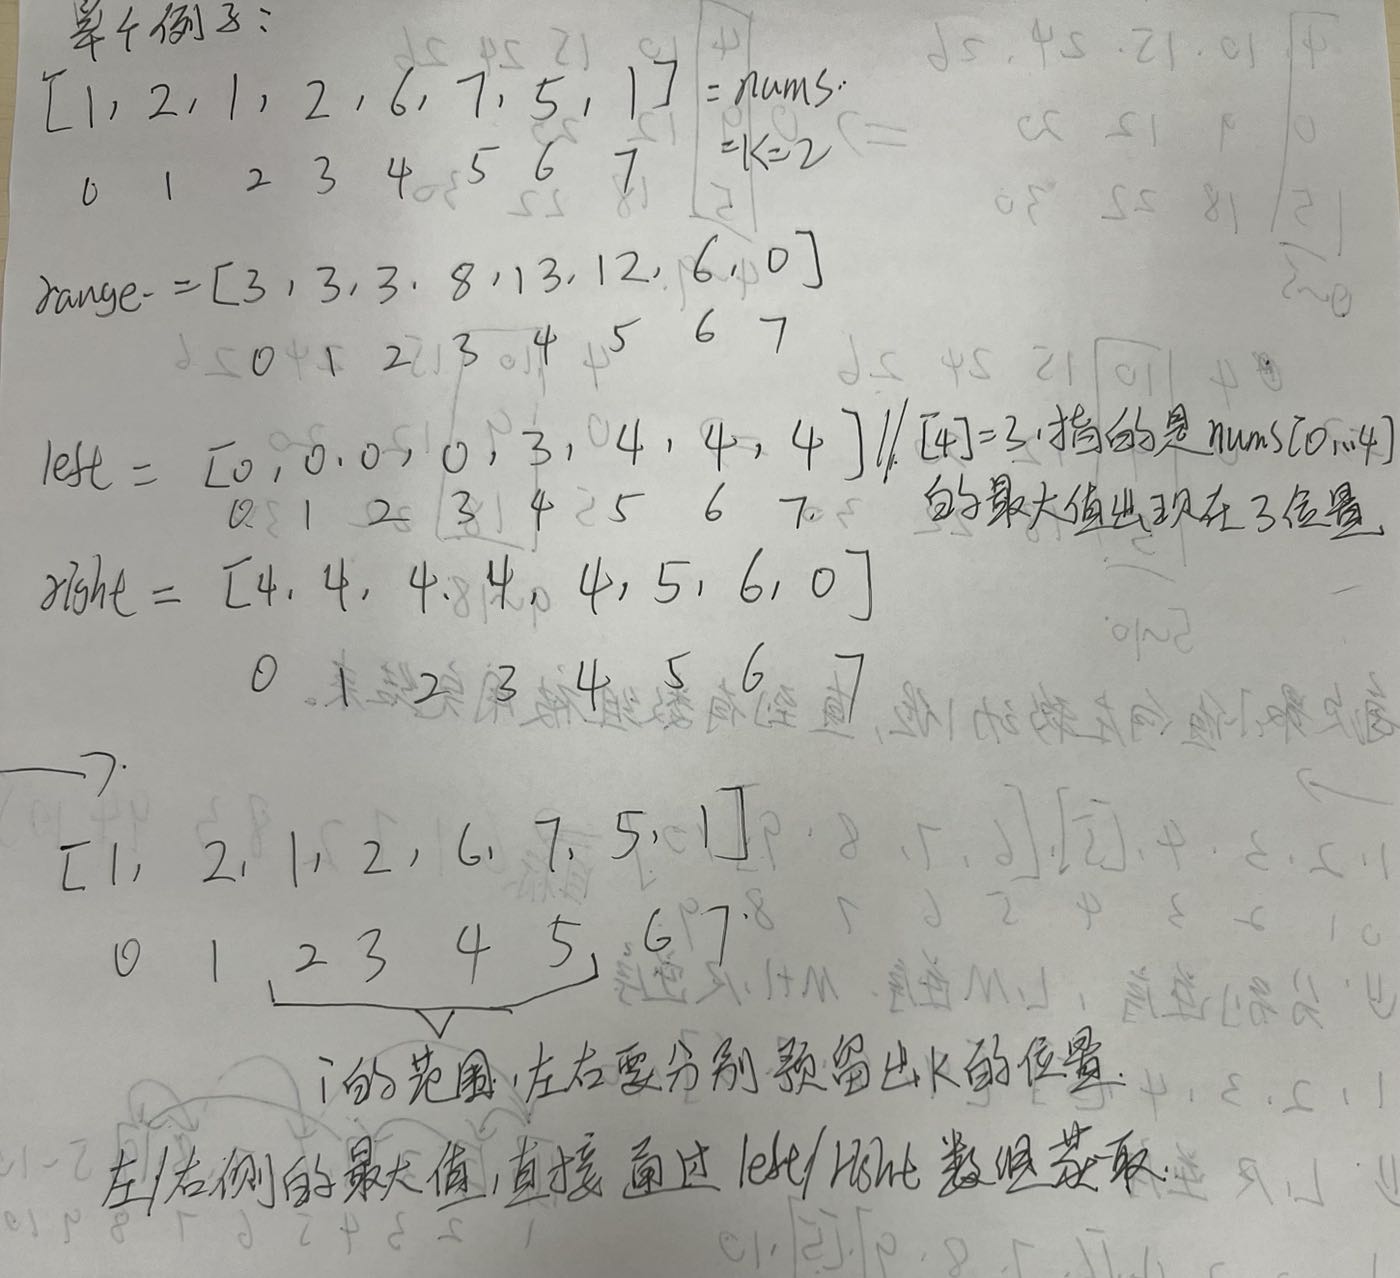 举个例子:
[1, 2, 1, 2, 6, 7, 5, 1] = nums.
=k=2
0 1 2 3 4 5 6 7
range = [3, 3, 3. 8, 13, 12, 6, 0]
0 1 2 3 4 5 6 7
left = [0, 0. 0, 0, 3, 4, 4, 4] // [4]=3,指的是nums[0...4]
0 1 2 3 4 5 6 7.
的最大值出现在3位置
right = [4, 4, 4. 4, 4, 5, 6, 0]
0 1 2 3 4 5 6 7
[1, 2, 1, 2, 6, 7, 5, 1]
0 1 2 3 4 5 6 7.
i的范围,左右要分别预留出k的位置.
左/右侧的最大值,直接通过left/right数组获取.